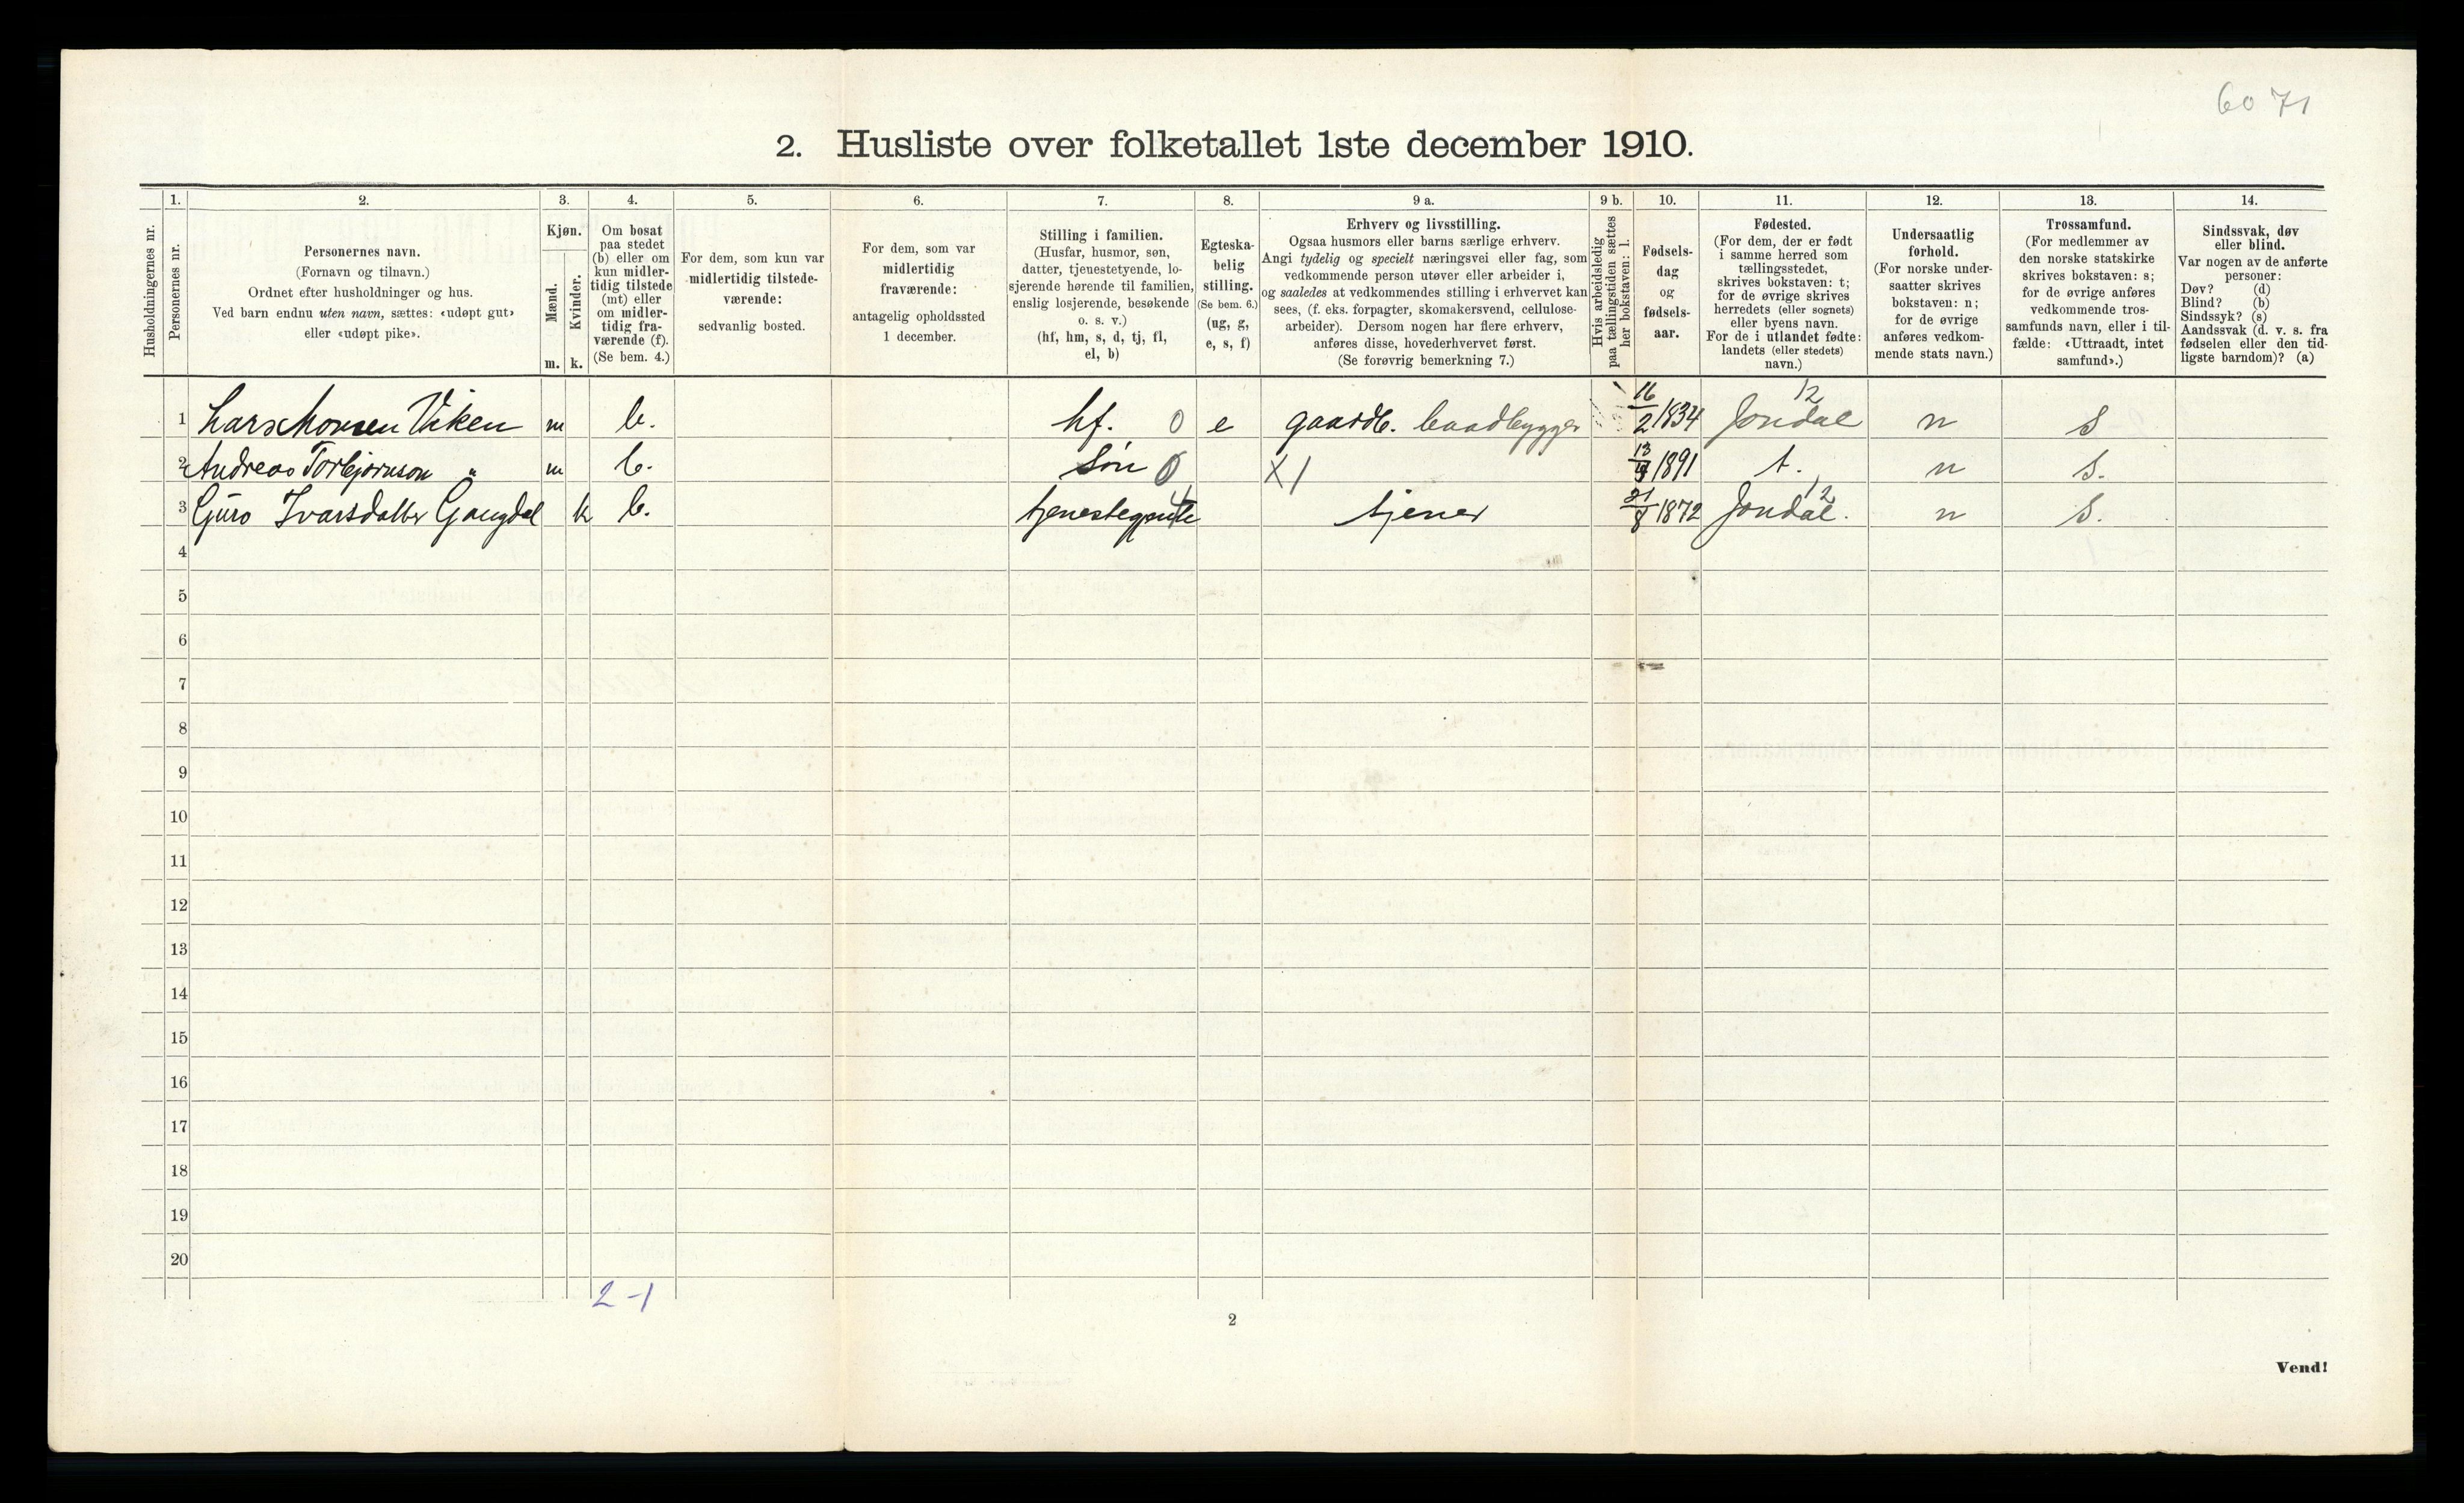 60 71
2. Husliste over folketallet 1ste december 1910.
1. 2. 3. 4. 5. 6. 7. 8. 9 a. 9 b. 10. 11. 12. 13. 14.
Husholdningernes nr.
Personernes nr.
Personernes navn.
(Fornavn og tilnavn.)
Ordnet efter husholdninger og hus.
Ved barn endnu uten navn, sættes: «udøpt gut»
eller «udøpt pike».
Kjøn.
Mænd.
m.
Kvinder.
k.
Om bosat
paa stedet
(b) eller om
kun midler-
tidig tilstede
(mt) eller
om midler-
tidig fra-
værende (f).
(Se bem. 4.)
For dem, som kun var
midlertidig tilstede-
værende:
sedvanlig bosted.
For dem, som var
midlertidig
fraværende:
antagelig opholdssted
1 december.
Stilling i familien.
(Husfar, husmor, søn,
datter, tjenestetyende, lo-
sjerende hørende til familien,
enslig losjerende, besøkende
o. s. v.)
(hf, hm, s, d, tj, fl,
el, b)
Egteska-
belig
stilling.
(Se bem. 6.)
(ug, g,
e, s, f)
Erhverv og livsstilling.
Ogsaa husmors eller barns særlige erhverv.
Angi tydelig og specielt næringsvei eller fag, som
vedkommende person utøver eller arbeider i,
og saaledes at vedkommendes stilling i erhvervet kan
sees, (f. eks. forpagter, skomakersvend, cellulose-
arbeider). Dersom nogen har flere erhverv,
anføres disse, hovederhvervet først.
(Se forøvrig bemerkning 7.)
Hvis arbeidsledig
paa tællingstiden sættes
her bokstaven: l.
Fødsels-
dag
og
fødsels-
aar.
Fødested.
(For dem, der er født
i samme herred som
tællingsstedet,
skrives bokstaven: t;
for de øvrige skrives
herredets (eller sognets)
eller byens navn.
For de i utlandet fødte:
landets (eller stedets)
navn.)
Undersaatlig
forhold.
(For norske under-
saatter skrives
bokstaven: n;
for de øvrige
anføres vedkom-
mende stats navn.)
Trossamfund.
(For medlemmer av
den norske statskirke
skrives bokstaven: s;
for de øvrige anføres
vedkommende tros-
samfunds navn, eller i til-
fælde: «Uttraadt, intet
samfund».)
Sindssvak, døv
eller blind.
Var nogen av de anførte
personer:
Døv? (d)
Blind? (b)
Sindssyk? (s)
Aandssvak (d. v. s. fra
fødselen eller den tid-
ligste barndom)? (a)
1 Lars Monsen Viken m b. hf. 0 e gaardb. baadbygger 16/2 1834 Jondal 12 n s
2 Andreas Torbjørnson " m b. Søn 0 X 1 1891 t. n s.
3 Guro Ivarsdatter k b. tjener 21/8 1872 Jondal. 12 n s.
4
5
6
7
8
9
10
11
12
13
14
15
16
17
18
19
20
2-1
2
Vend!